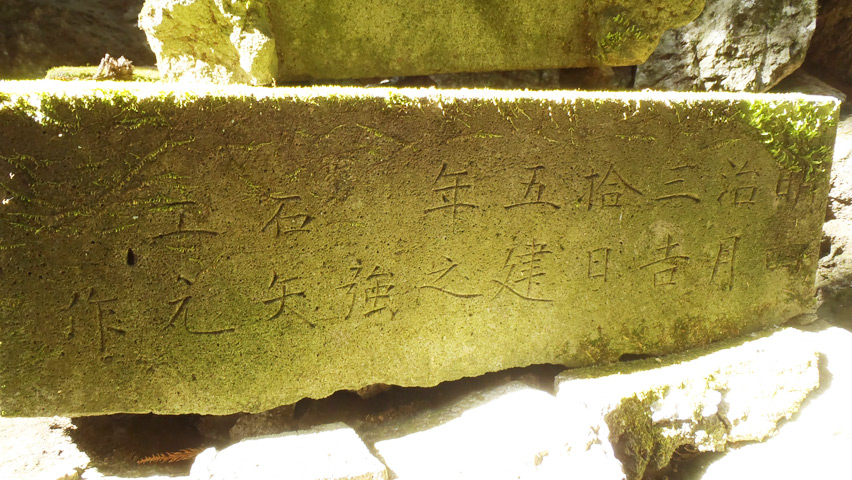 明治三拾五年 石工
四月吉日建之 強矢元作